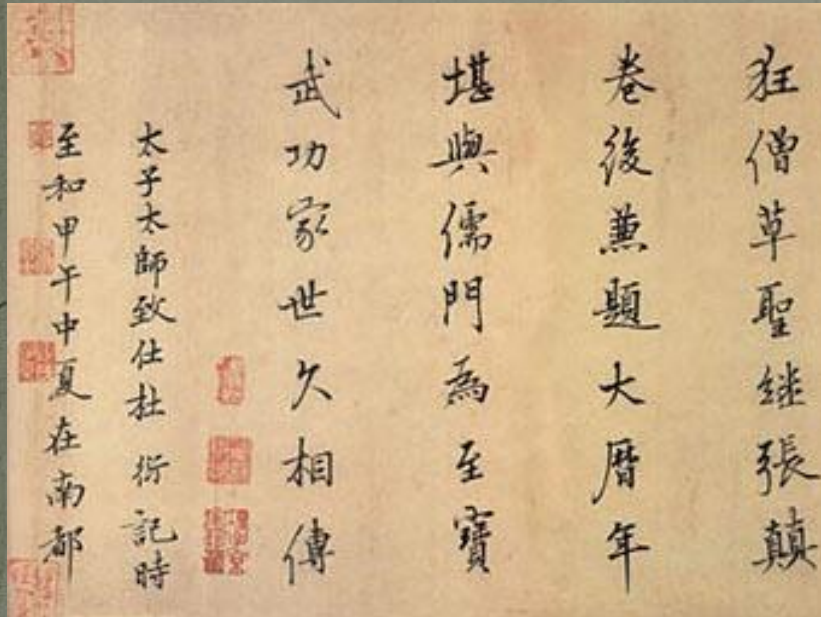 狂僧草聖継張顛
卷後兼題大曆年
堪與儒門為至寶
武功家世久相傳
太子太師致仕杜衍記時
至和甲午中夏在南都